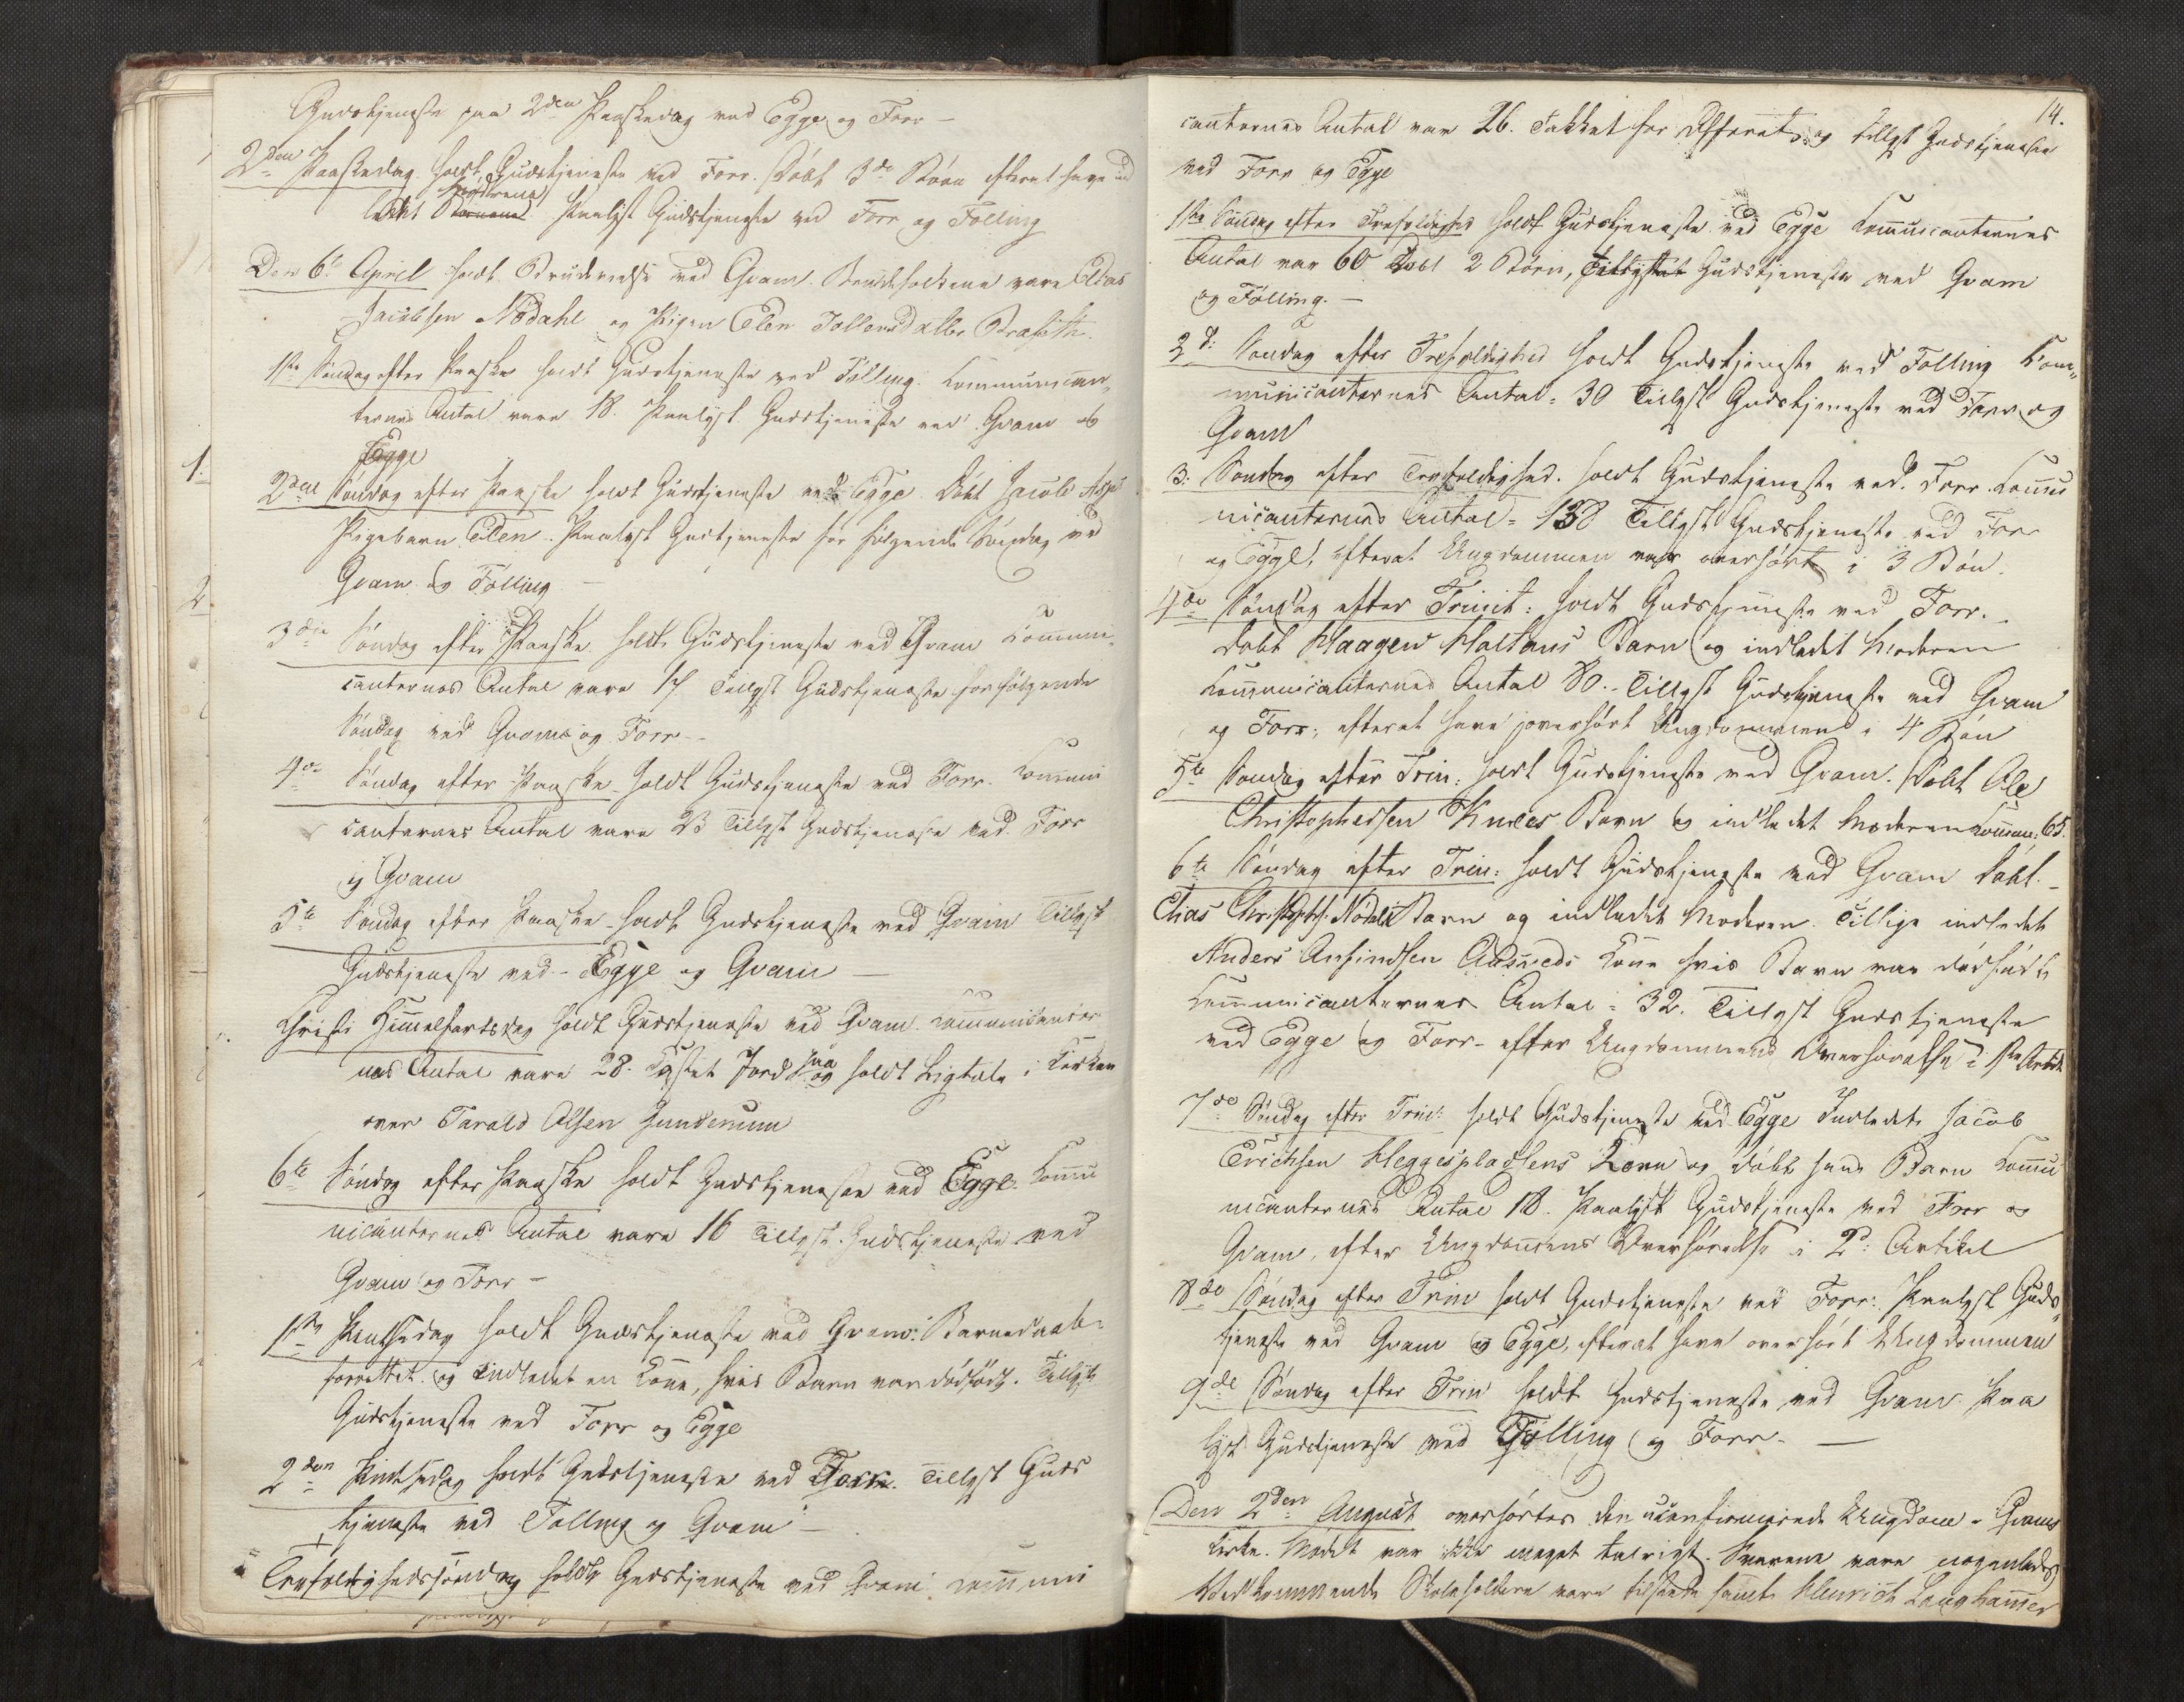 Gudstjeneste paa 2den Paaskedag ved Egge og Forr –
2den Paaskedag holdt Gudstjeneste ved Forr. Døbt 3de Børn efterat have ind
ledet Mødrene Konerne. Paalyst Gudstjeneste ved Forr og Følling
Den 6te April holdt Brudevielse ved Qvam. Brudefolkene vare Elias
Jacobsen Nødahl og Pigen Elen Tollevsdatter
1ste Søndag efter Paaske holdt Gudstjeneste ved Følling. Communican„
ternes Antal vare 18. Paalyst Gudstjeneste ved Qvam og
Egge
1.
2den Søndag efter Paaske holdt Gudstjeneste ved Egge. Døbt Jacob
Pigebarn Elen. Paalyst Gudstjeneste for følgende Søndag ved
Qvam og Følling –
2
3die Søndag efter Paaske holdt Gudstjeneste ved Qvam Communi
canternes Antal vare 17. Tillyst Gudstjeneste for følgende
Søndag ved Qvam og Forr –
4de Søndag efter Paaske holdt Gudstjeneste ved Forr. Communi
canternes Antal vare 23 Tillyst Gudstjeneste ved Forr
og Qvam
5te Søndag efter Paaske holdt Gudstjeneste ved Qvam Tillyst
Gudstjeneste ved Egge og Qvam –
Christi Himmelfartsdag holdt Gudstjeneste ved Qvam. Communicanter
nes Antal vare 28. Kastet Jord paa og holdt Ligtale i Kirken
over Tarald Olsen
6te Søndag efter Paaske holdt Gudstjeneste ved Egge. Commu
nicanternes Antal vare 16 Tillyst Gudstjeneste ved
Qvam og Forr –
1ste Pintsedag holdt Gudstjeneste ved Qvam. Barnedaab
forrettet og indledet en Kone, hvis Barn var dødfødt. Tillyst
Gudstjeneste ved Forr og Egge
2den Pintsedag holdt Gudstjeneste ved Forr. Tillyst Guds
tjeneste ved Følling og Qvam –
Trefoldighedssøndag holdt Gudstjeneste ved Qvam Communi
14.
canternes Antal var 26. Takket for Offeret og tillyst Gudstjeneste
ved Forr og Egge
1ste Søndag efter Trefoldighed holdt Gudstjeneste ved Egge Communicanternes
Antal var 60 Døbt 2 Børn, Tillyst Gudstjeneste ved Qvam
og Følling. –
2d: Søndag efter Trefoldighed holdt Gudstjeneste ved Følling Com„
municanternes Antal = 30 Tillyst Gudstjeneste ved Forr og
Qvam
3. Søndag efter Trefoldighed. holdt Gudstjeneste ved Forr. Commu
nicanternes Antal = 138 Tillyst Gudstjeneste ved Forr
og Egge, efterat Ungdommen var overhørt i 3 Bøn.
4de Søndag efter Trinit: holdt Gudstjeneste ved Forr.
Døbt Haagen Barn og indledet Moderen
Communicanternes Antal 80. Tillyst Gudstjeneste ved Qvam
og Forr, efterat have overhørt Ungdommen i 4 Bøn
5te Søndag efter Trin: holdt Gudstjeneste ved Qvam. Døbt Ole
Christophersen Barn og indledet Moderen Commun: 65.
6te Søndag efter Trin: holdt Gudstjeneste ved Qvam Døbt
Elias Christophs: Nødal Barn og indledet Moderen. Tillige indledet
Anders Arfindsen Kone hvis Barn var dødfødt
Communicanternes Antal = 32. Tillyst Gudstjeneste
ved Egge og Forr – efter Ungdommens Overhørelse i 1ste Artik
7de Søndag efter Trin: holdt Gudstjeneste ved Egge Indledet Jacob
Erichsen Heggespladsens Kone og døbt hans Barn Commu
nicanternes Antal 18. Paalyst Gudstjeneste ved Forr og
Qvam, efter Ungdommens Overhørelse i 2d: Artikel
8de Søndag efter Trin holdt Gudstjeneste ved Forr. Paalyst Guds„
tjeneste ved Qvam og Egge, efterat have overhørt Ungdommen
9de Søndag efter Trin holdt Gudstjeneste ved Qvam. Paa
lyst Gudstjeneste ved Følling og Forr. –
Den 2den August overhørtes den uconfirmerede Ungdom i Qvams
Kirke. Mødet var ikke meget talrigt. Svarene vare nogenledes
Vedkommende Skoleholdere vare tilstede samt Henrich Langhammer